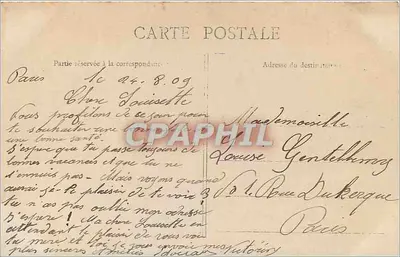 CARTE POSTALE
Partie réservée à la correspondance
Adresse du destinataire
Paris le 24.8.09
Chère Louisette
Nous profitons de ce jour pour
te souhaiter une
une bonne santé
J'espère que tu passe toujours de
bonnes vacances et que tu ne
t'ennuis pas - Mais voyons quand
aurai-je le plaisir de te voir
tu n'as pas oublié mon adresse
J'espère! Ma chère Louisette en
attendant le plaisir de vous voir
ta mère et toi je vous envoie mes
plus sincères amitiés Victorine
Mademoiselle
Louise
Rue Dukerque
Paris
CPAPHIL